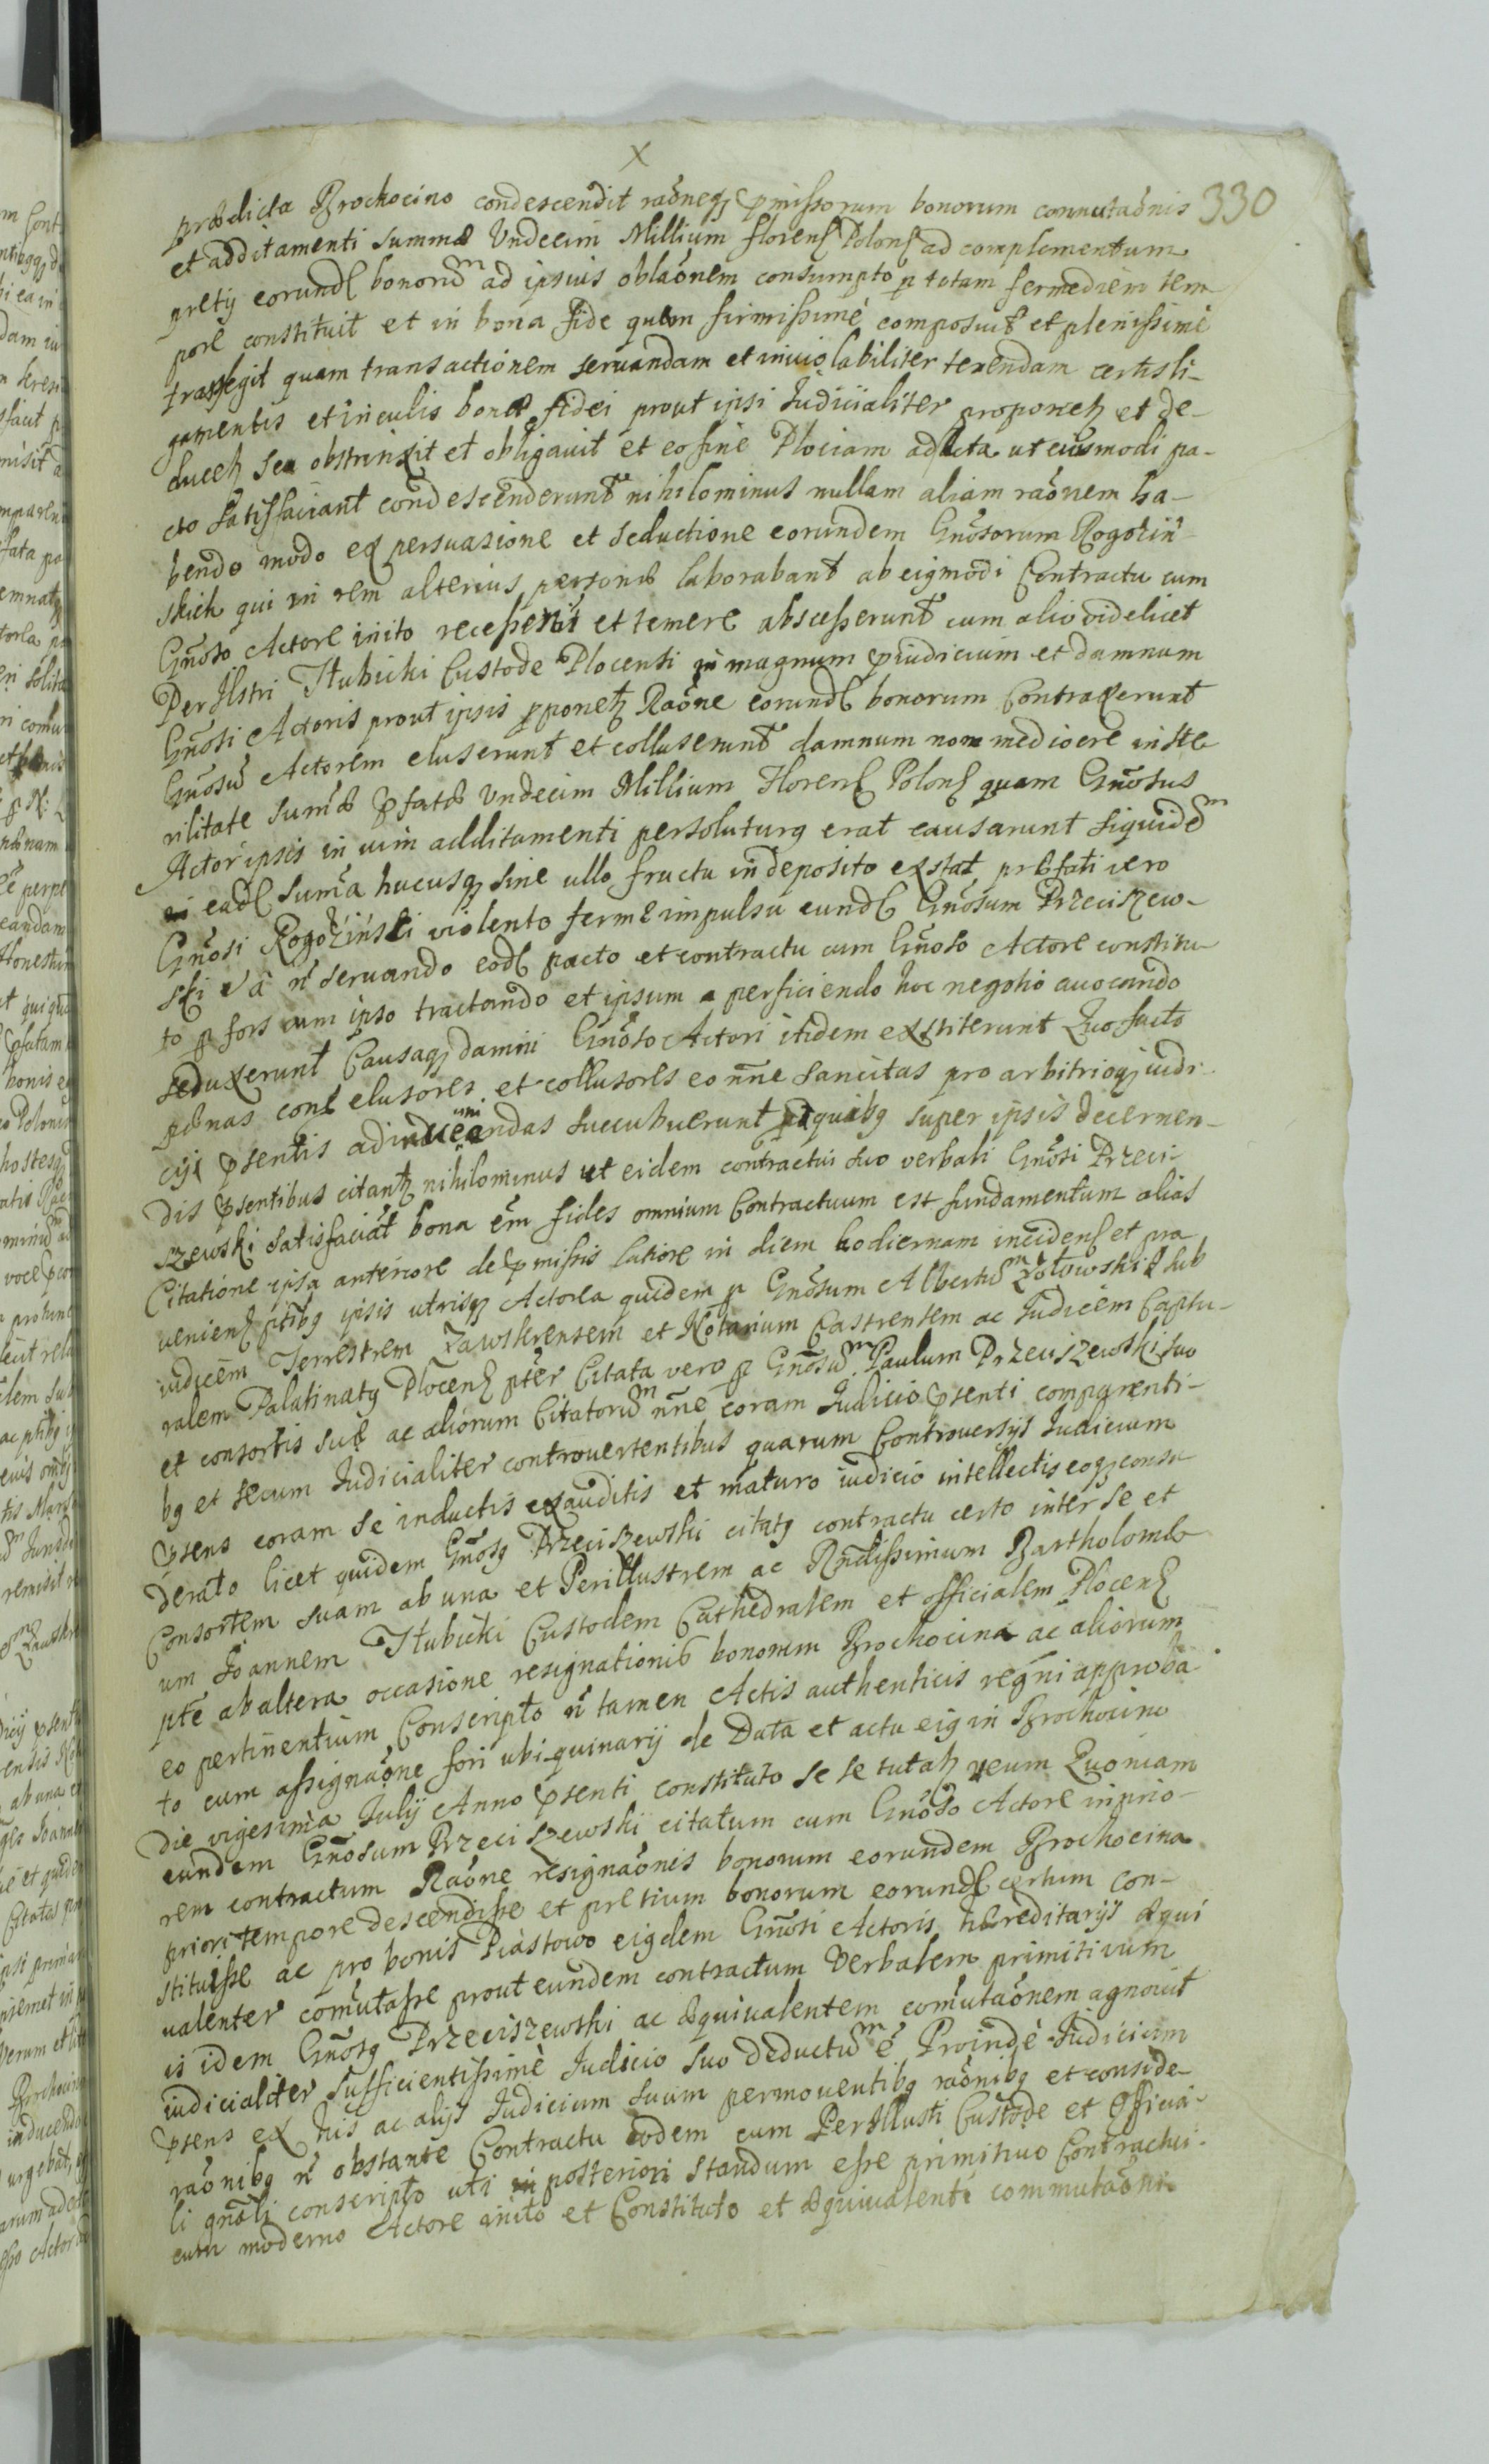 X
330
prædicta Brochocino condescendit raõneqȝ pmissorum bonorum connutaõnis
et additamenti summæ Vndecim Millium florenſ Polonſ ad complementum
pretij eorundſ bonorũm ad ipsius oblaõnem consumpto p totam fermediem tem
pore constituit et in bona fide quam firmissimè composuit et plenissimè
transegit quam transactionem seruandam et inuiolabiliter tenendam certis li-
gamentis et vinculis bonæ fidei prout ipsi Iudicialiter proponetȝ et de-
ducetȝ sea obstrinxit et obligauit et eo fine Plociam ad Acta ut eiusmodi pa-
cto satisfaciant condescenderunt nihilominus nullam aliam raõnem ha-
bendo modo ex persuasione et seductione eorundem Gnõsorum Rogoziń-
skich qui in rem alterius personæ laborabant ab eigmodi Contractu cum
Gnõso Actore inito recesserũt et temere abscesserunt cum alio videlicet
Per Ilstri Hubicki Custode Plocensi in magnum piudicium et damnum
Gnõsi Actoris prout ipsis pponetȝ Raõne eorundſ bonorum Contraxerunt
Gnõsũ Actorem eluserunt et colluserunt damnum non mediocre in ste
rilitate sumæ pfatæ Vndecim Millium Florenſ Polonſ quam Gnõsus
Actor ipsis in uim additamenti persoluturg erat causarunt siquidẽm
eadſ suma hucusqȝ sine ullo fructu in deposito exstat præfati vero
Gnõsi Rogoziński violento fermè impulsu eundſ Gnõsum Przeciszew-
ski à ñ seruando eodſ pacto et contractu cum Gnõso Actore constitu-
to p fors cum ipso tractando et ipsum a perficiendo hoc negotio auocando
seduxerunt Causaqȝ damni Gnõso Actori itidem exstiterunt Quo facto
pænas conſ elusores et collusores eo nñe sancitas pro arbitrioqȝ iudi-
cij psentis adinueniendas succubuerunt quibg super ipsis decernen-
dis psentibus citantȝ nihilominus ut eidem contractui suo verbali Gnõsi Przeci-
szewski satisfaciãt bona em fides omnium Contractuum est fundamentum alias
Citatione ipsa anteriore de pmissis latiore in diem hodiernam incidenſ et pra
uenienſ ptibg ipsis utrisqȝ Actorea quidem p Gnõsum Albertũm Żółtowski sub
iudicem Terrestrem Zawskrensem et Notarium Castrensem ac Iudicem Captu-
ralem Palatinatg Plocenſ pter Citata vero p Gnõsũm Paulum Przeciszewski suo
et consortis suæ ac aliorum Citatorũm nñe coram Iudicio psenti comparenti-
bg et secum Iudicialiter controuertentibus quarum Controuersijs Iudicium
psens coram se inductis exauditis et maturo iudicio intellectis eoqȝ consi
derato licet quidem Gnõsg Przeciszewski citatg contractu certo inter se et
Consortem suam ab una et Perillustrem ac Rndissimum Bartholomæ
um Ioannem Hubicki Custodem Cathedralem et officialem Plocenſ
pte ab altera occasione resignationis bonorum Brochocina ac aliorum
eo pertinentium Conscripto ñ tamen Actis authenticis regni approba-
to cum assignaõne fori ubi quinarij de Data et actu eig in Brochocino
die vigesima Iulij Anno psenti constituto se se tutatȝ verum Quoniam
eundem Gnõsum Przeciszewski citatum cum Gnõso Actore in prio-
rem contractum Raõne resignaõnis bonorum eorundem Brochocina
priori tempore descendisse et pretium bonorum eorundſ certum con-
stituisse ac pro bonis Piastowo eigdem Gnõsi Actoris hæreditarijs æqui
ualenter comutasse prout eundem contractum Verbalem primitiuum
is idem Gnõsg Przeciszewski ac æquiualentem comutaõnem agnouit
iudicialiter sufficientissimè Iudicio suo deductũm ẽ Proindè Iudicium
psens ex his ac alijs Iudicium suum permouentibg raõnibg et conside-
raõnibg ñ obstante Contractu eodem cum Perillusti Custode et Officia-
li gnãli conscripto uti posteriori standum esse primitiuo Contractui
cum moderno Actore inito et Constituto et æquiualenti commutaõni